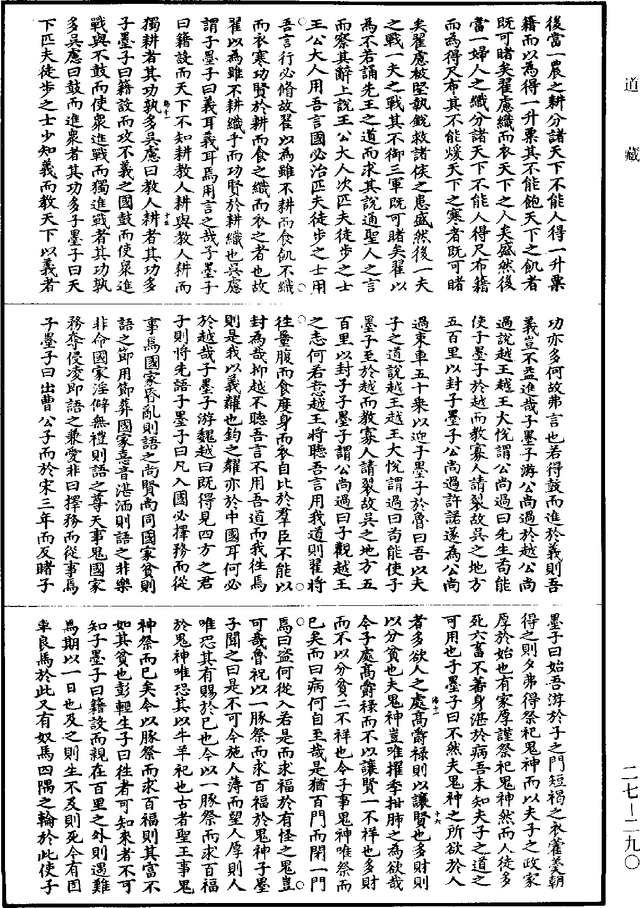 道藏
後當一農之耕分諸天下不能人得一升粟
籍而以為得一升粟其不能飽天下之飢者
既可睹矣翟慮織而衣天下之人矣盛然後
當一婦人之織分諸天下不能人得尺布籍
而為得尺布其不能煖天下之寒者既可睹
矣翟慮被堅執銳救諸侯之患盛然後一夫
之戰一夫之戰其不御三軍既可睹矣翟以
為不若誦先王之道而求其說通聖人之言
而察其辭上說王公大人次匹夫徒步之士
王公大人用吾言國必治匹夫徒步之士用
吾言行必脩故翟以為雖不耕而食飢不織
而衣寒功賢於耕而食之織而衣之者也故
翟以為雖不耕織乎而功賢於耕織也吳慮
謂子墨子曰義耳義耳焉用言之哉子墨子
曰籍設而天下不知耕教人耕與教人耕而
獨耕者其功孰多吳慮曰教人耕者其功多
子墨子曰籍設而攻不義之國鼓而使衆進
戰與不鼓而使衆進戰而獨進戰者其功孰
多吳慮曰鼓而進衆者其功多子墨子曰天
下匹夫徒步之士少知義而教天下以義者
功亦多何故弗言也若得鼓而進於義則吾
義豈不益進哉子墨子游公尚過於越公尚
過說越王越王大悅謂公尚過曰先生苟能
使子墨子於越而教寡人請裂故吳之地方
五百里以封子墨子公尚過許諾遂為公尚
過束車五十乘以迎子墨子於魯曰吾以夫
子之道說越王越王大悅謂過曰苟能使子
墨子至於越而教寡人請裂故吳之地方五
百里以封子子墨子謂公尚過曰子觀越王
之志何若意越王將聽吾言用我道則翟將
往量腹而食度身而衣自比於羣臣不能以
封為哉抑越不聽吾言不用吾道而我往焉
則是我以義糶也鈞之糶亦於中國耳何必
於越哉子墨子游魏越曰既得見四方之君
子則將先語子墨子曰凡入國必擇務而從
事焉國家昏亂則語之尚賢尚同國家貧則
語之節用節葬國家憙音湛湎則語之非樂
非命國家淫僻無禮則語之尊天事鬼國家
務奪侵凌即語之兼愛非曰擇務而從事焉
子墨子曰出曹公子而於宋三年而反睹子
墨子曰始吾游於子之門短褐之衣藿羹朝
得之則夕弗得祭祀鬼神而以夫子之政家
厚於始也有家厚謹祭祀鬼神然而人徒多
死六畜不蕃身湛於病吾未知夫子之道之
可用也子墨子曰不然夫鬼神之所欲於人
者多欲人之處高爵祿則以讓賢也多財則
以分貧也夫鬼神豈唯擢季拑肺之為欲哉
今子處高爵祿而不以讓賢一不祥也多財
而不以分貧二不祥也今子事鬼神唯祭而
已矣而曰病何自至哉是猶百門而閉一門
焉曰盜何從入若是而求福於有怪之鬼豈
可哉魯祝以一豚祭而求百福於鬼神子墨
子聞之曰是不可今施人薄而望人厚則人
唯恐其有賜於己也今以一豚祭而求百福
於鬼神唯恐其以牛羊祀也古者聖王事鬼
神祭而已矣今以豚祭而求百福則其富不
如其貧也彭輕生子曰往者可知來者不可
知子墨子曰籍設而親在百里之外則遇難
焉期以一日也及之則生不及則死今有固
車良馬於此又有奴馬四隅之輪於此使子
二七－二九〇